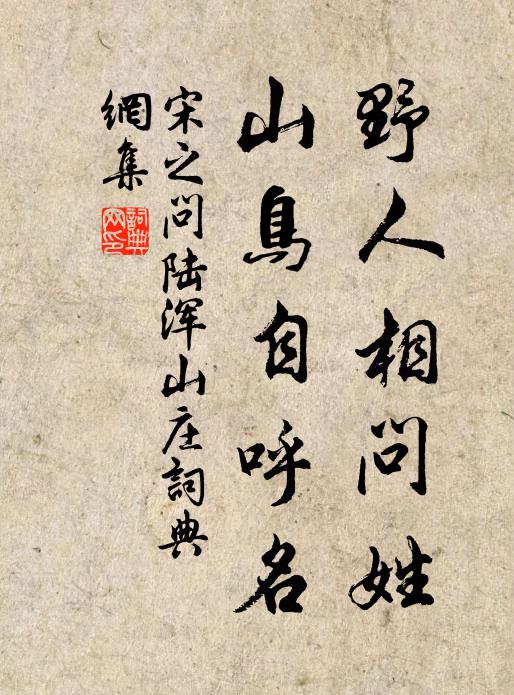 野人相问姓
山鳥自呼名
宋之问陆浑山庄詞典
網集
詞典
网印